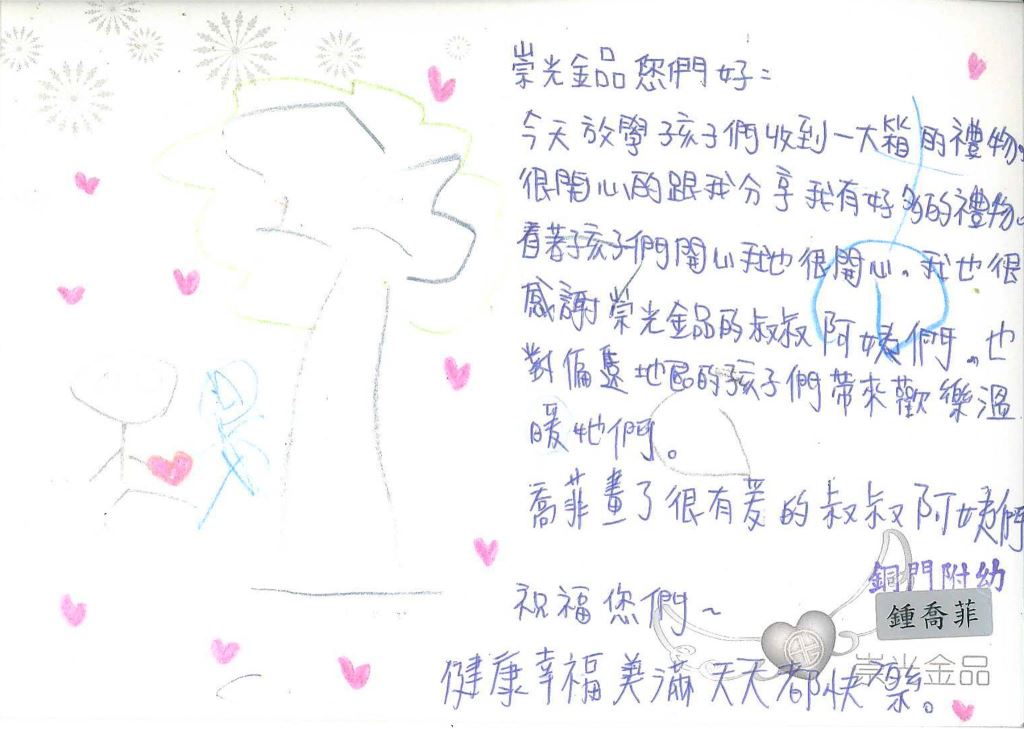 崇光金品您們好：
今天放學孩子們收到一大箱的禮物。
很開心的跟我分享我有好多的禮物。
看著孩子們開心我也很開心。我也很
感謝崇光金品的叔叔阿姨們。也
對偏遠地區的孩子們帶來歡樂溫
暖他們。
喬菲畫了很有愛的叔叔阿姨們
銅門附幼
鍾喬菲
祝福您們～
崇光金品
健康幸福美滿天天都快樂。